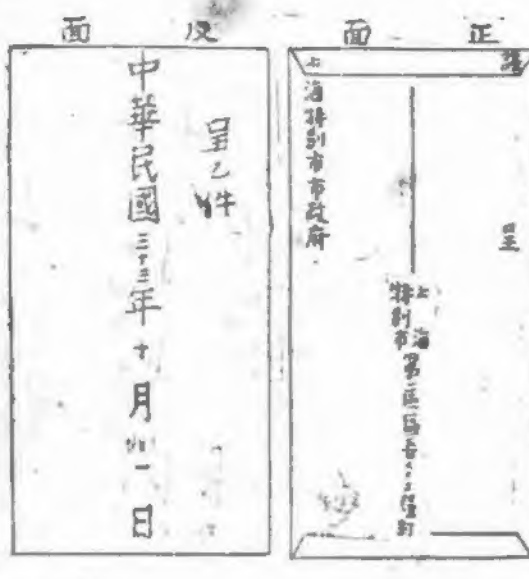 正面
呈
上海特別市第二區區長
上海特別市市政府
反面
呈乙件
中華民國三十三年十月一日